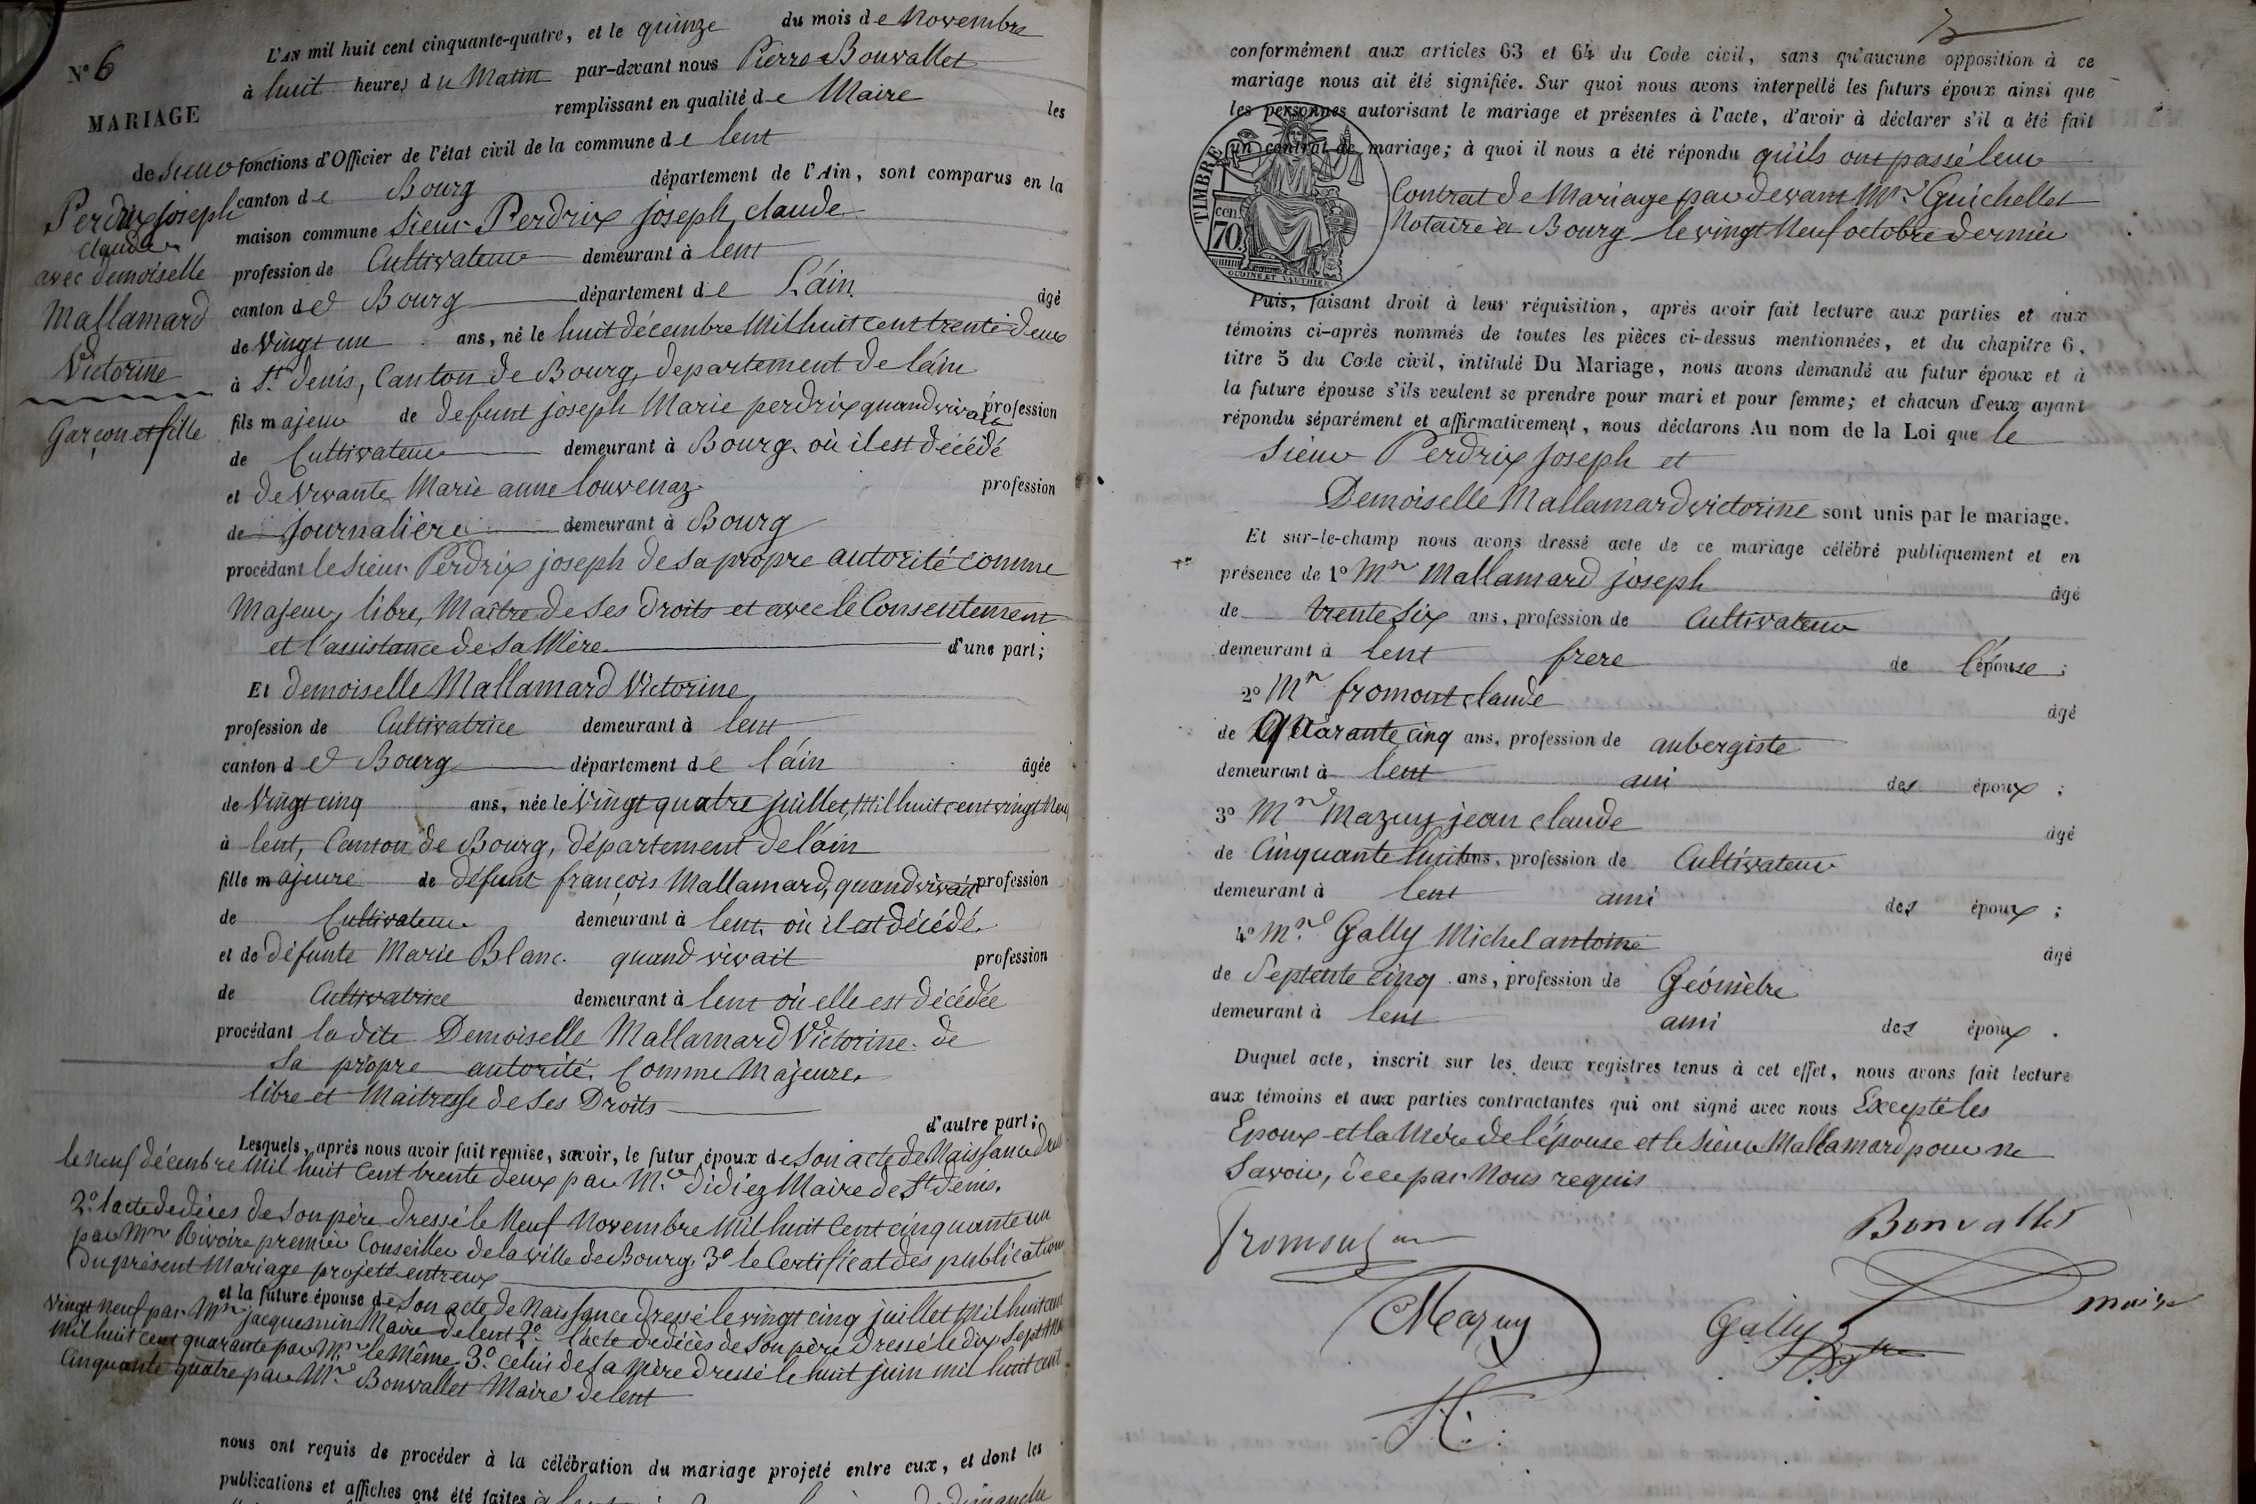 N° 6
MARIAGE
de Sieur
Perdrix joseph
claude
avec demoiselle
Mallamard
Victorine
Garçon et fille
L'AN mil huit cent cinquante-quatre, et le quinze du mois de Novembre
à huit heures du Matin par-devant nous Pierre Bonvallet
remplissant en qualité de Maire les
fonctions d'Officier de l'état civil de la commune de lent
canton de Bourg département de l'Ain, sont comparus en la
maison commune Sieur Perdrix joseph claude
profession de Cultivateur demeurant à lent
canton de Bourg département de L'áin âgé
de Vingt un ans, né le huit décembre Mil huit cent trente deux
à St denis, Canton de Bourg, departement de l'áin
fils majeur de defunt joseph Marie perdrix quand vivait profession
de Cultivateur demeurant à Bourg où il est décédé
et de vivante Marie anne Couvenaz profession
de journalière demeurant à Bourg
procédant le sieur Perdrix joseph de sa propre autorité comme
Majeur, libre, Maître de ses droits et avec le Consentement
et l'assistance de sa Mère d'une part;
ET demoiselle Mallamard Victorine,
profession de Cultivatrice demeurant à lent
canton de Bourg département de l'áin âgée
de Vingt cinq ans, née le Vingt quatre juillet, Mil huit cent vingt Neuf
à lent, Canton de Bourg, département de l'áin
fille majeure de defunt françois Mallamard, quand vivait profession
de Cultivateur demeurant à lent où il est décédé
et de défunte Marie Blanc quand vivait profession
de Cultivatrice demeurant à lent où elle est décédée
procédant la dite Demoiselle Mallamard Victorine de
sa propre autorité. Comme Majeure,
libre et Maitresse de ses Droits
d'autre part;
Lesquels, après nous avoir fait remise, savoir, le futur époux de Son acte de Naissance dressé
le neuf décembre Mil huit Cent trente deux par Mr didiez Maire de St denis,
2° l'acte de décès de Son père dressé le Neuf Novembre Mil huit Cent cinquante un
par Mr Rivoire premier Conseiller de la ville de Bourg, 3° le Certificat des publications
Du présent Mariage projeté entre eux
et la future épouse de Son acte de Naissance dressé le vingt cinq juillet Mil huit cent
Vingt neuf par Mr jacquemin Maire de lent 2° l'acte de décès de Son père dressé le dix Sept
Mil huit cent quarante par Mr le Même, 3° celui de sa Mère dressé le huit juin mil huit cent
Cinquante quatre par Mr Bonvallet Maire de lent
nous ont requis de procéder à la célébration du mariage projeté entre eux, et dont les
publications et affiches ont été faites à
conformément aux articles 63 et 64 du Code civil, sans qu'aucune opposition à ce
mariage nous ait été signifiée. Sur quoi nous avons interpellé les futurs époux ainsi que
les personnes autorisant le mariage et présentes à l'acte, d'avoir à déclarer s'il a été fait
un contrat de mariage; à quoi il nous a été répondu qu'ils ont passé leur
Contrat de Mariage par devant Mr Guichellet
Notaire à Bourg le vingt Neuf octobre dernier
TIMBRE
cen.
70
OUDINÉ ET VAUTHIER
Puis, faisant droit à leur réquisition, après avoir fait lecture aux parties et aux
témoins ci-après nommés de toutes les pièces ci-dessus mentionnées, et du chapitre 6,
titre 5 du Code civil, intitulé Du Mariage, nous avons demandé au futur époux et à
la future épouse s'ils veulent se prendre pour mari et pour femme; et chacun d'eux ayant
répondu séparément et affirmativement, nous déclarons Au nom de la Loi que le
Sieur Perdrix Joseph et
Demoiselle Mallamard victorine sont unis par le mariage.
Et sur-le-champ nous avons dressé acte de ce mariage célébré publiquement et en
présence de 1° Mr Mallamard joseph âgé
de trente Six ans, profession de Cultivateur
demeurant à lent frere de l'épouse;
2° Mr fromont claude âgé
de Quarante cinq ans, profession de aubergiste
demeurant à lent ami des époux;
3° Mr Mazuy jean claude âgé
de Cinquante huit ans, profession de Cultivateur
demeurant à lent ami des époux;
4° Mr Gally Michel antoine âgé
de Septente cinq ans, profession de Géomètre
demeurant à lent ami des époux.
Duquel acte, inscrit sur les deux registres tenus à cet effet, nous avons fait lecture
aux témoins et aux parties contractantes qui ont signé avec nous Excepté les
Epoux et la Mère de l'épouse et le Sieur Mallamard pour ne
Savoir, de ce par Nous requis
Fromont
Bonvallet
maire
CMazuy
Gally